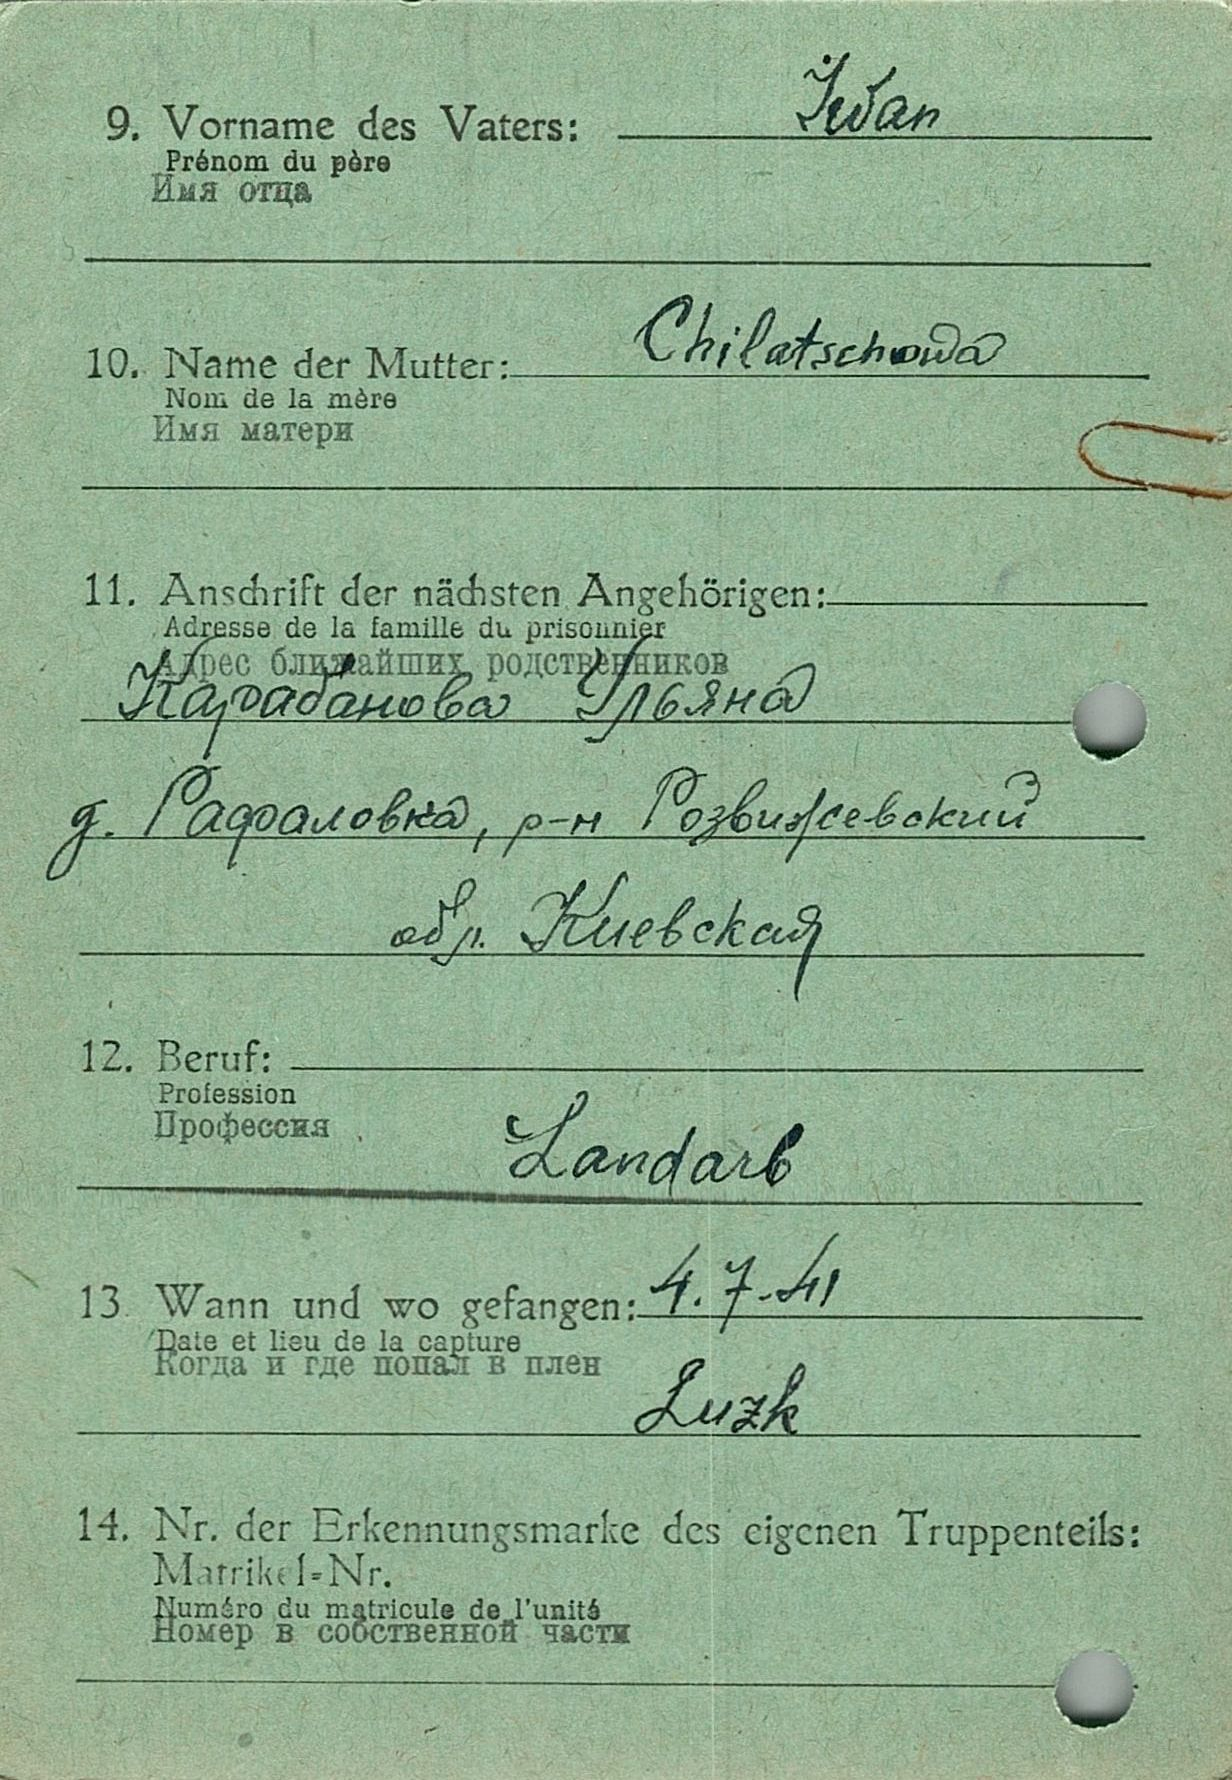 9. Vorname des Vaters: Iwan
Prénom du père
Имя отца
10. Name der Mutter: Chilatschowa
Nom de la mère
Имя матери
11. Anschrift der nächsten Angehörigen:
Adresse de la famille du prisonnier
Адрес ближайших родственников
Карабанова Ульяна
д. Рафаловка, р-н Розвижевский
обл. Киевская
12. Beruf:
Profession
Профессия
Landarb
13 Wann und wo gefangen: 4.7.41
Date et lieu de la capture
Когда и где попал в плен
Luzk
14. Nr. der Erkennungsmarke des eigenen Truppenteils:
Matrikel-Nr.
Numéro du matricule de l'unité
Номер в собственной части